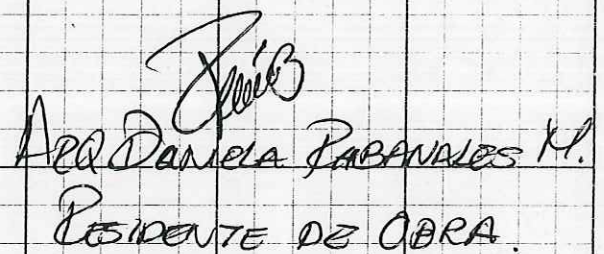 ARQ DANIELA RABANALES M.
RESIDENTE DE OBRA.